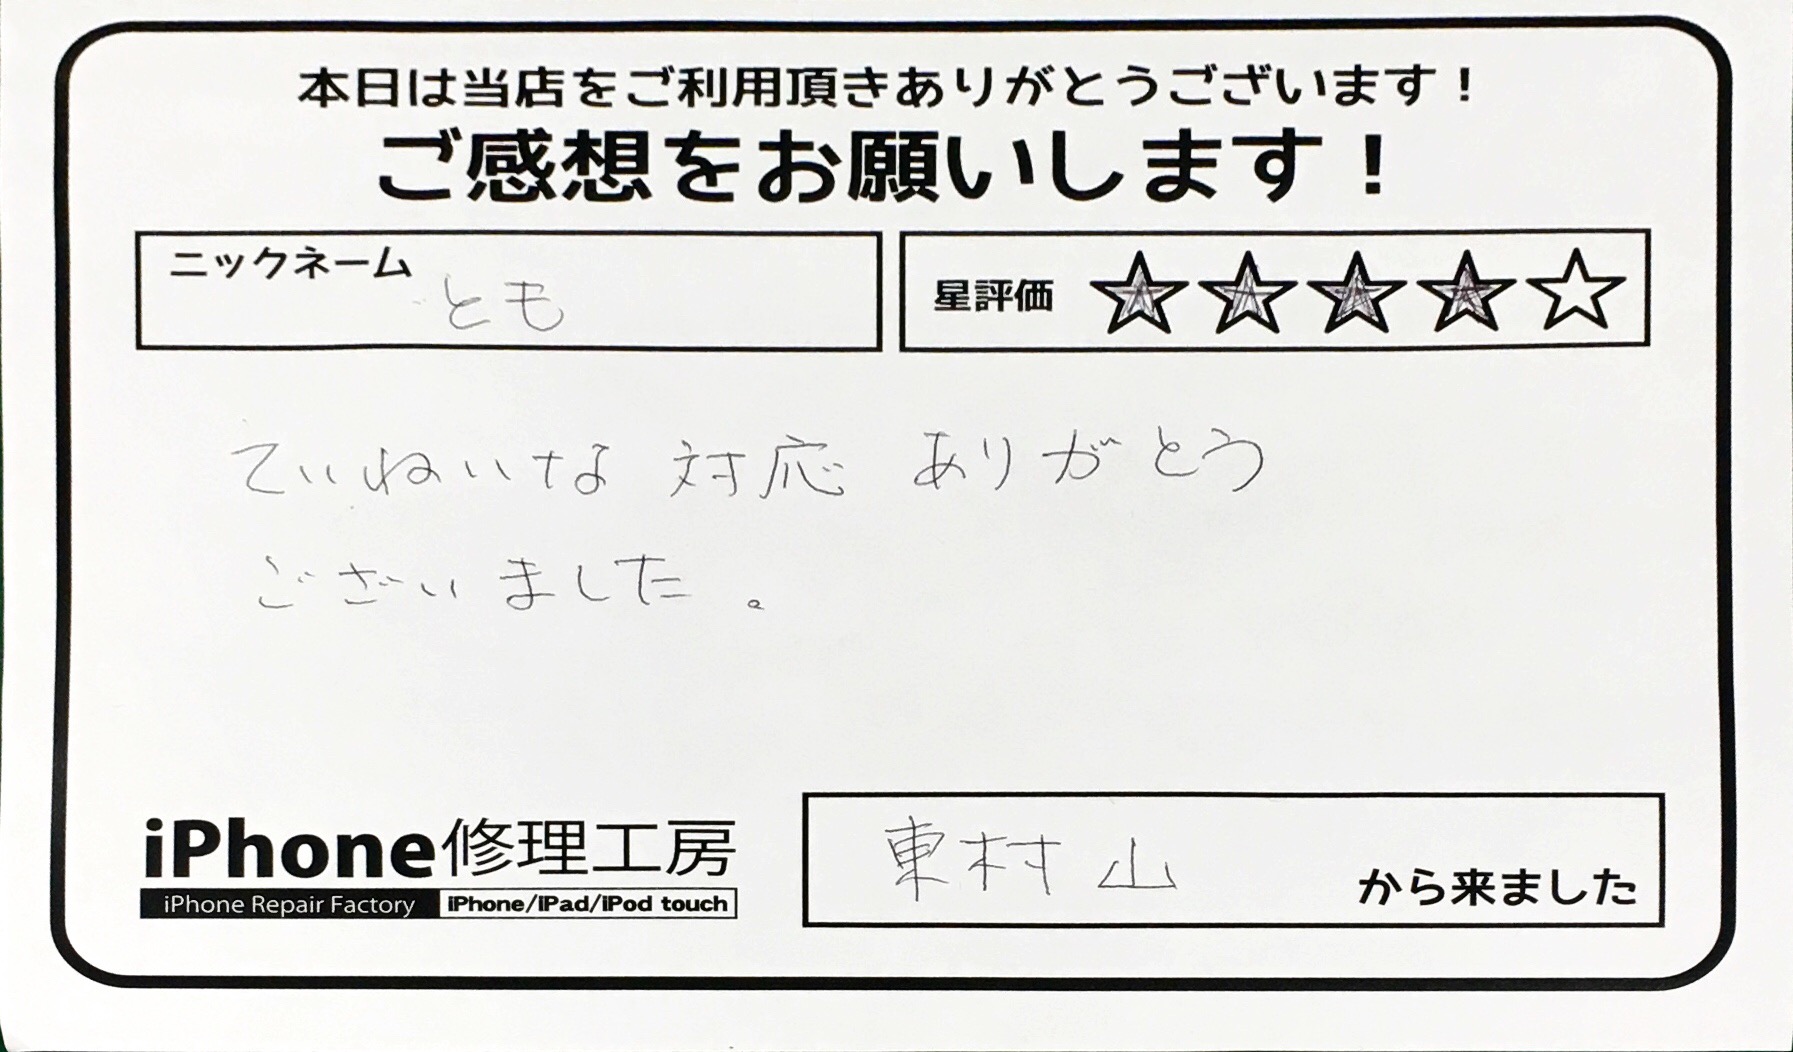 本日は当店をご利用頂きありがとうございます！
ご感想をお願いします！
ニックネーム
とも
星評価
ていねいな 対応 ありがとう
ございました 。
iPhone修理工房
iPhone Repair Factory iPhone/iPad/iPod touch
東村山
から来ました